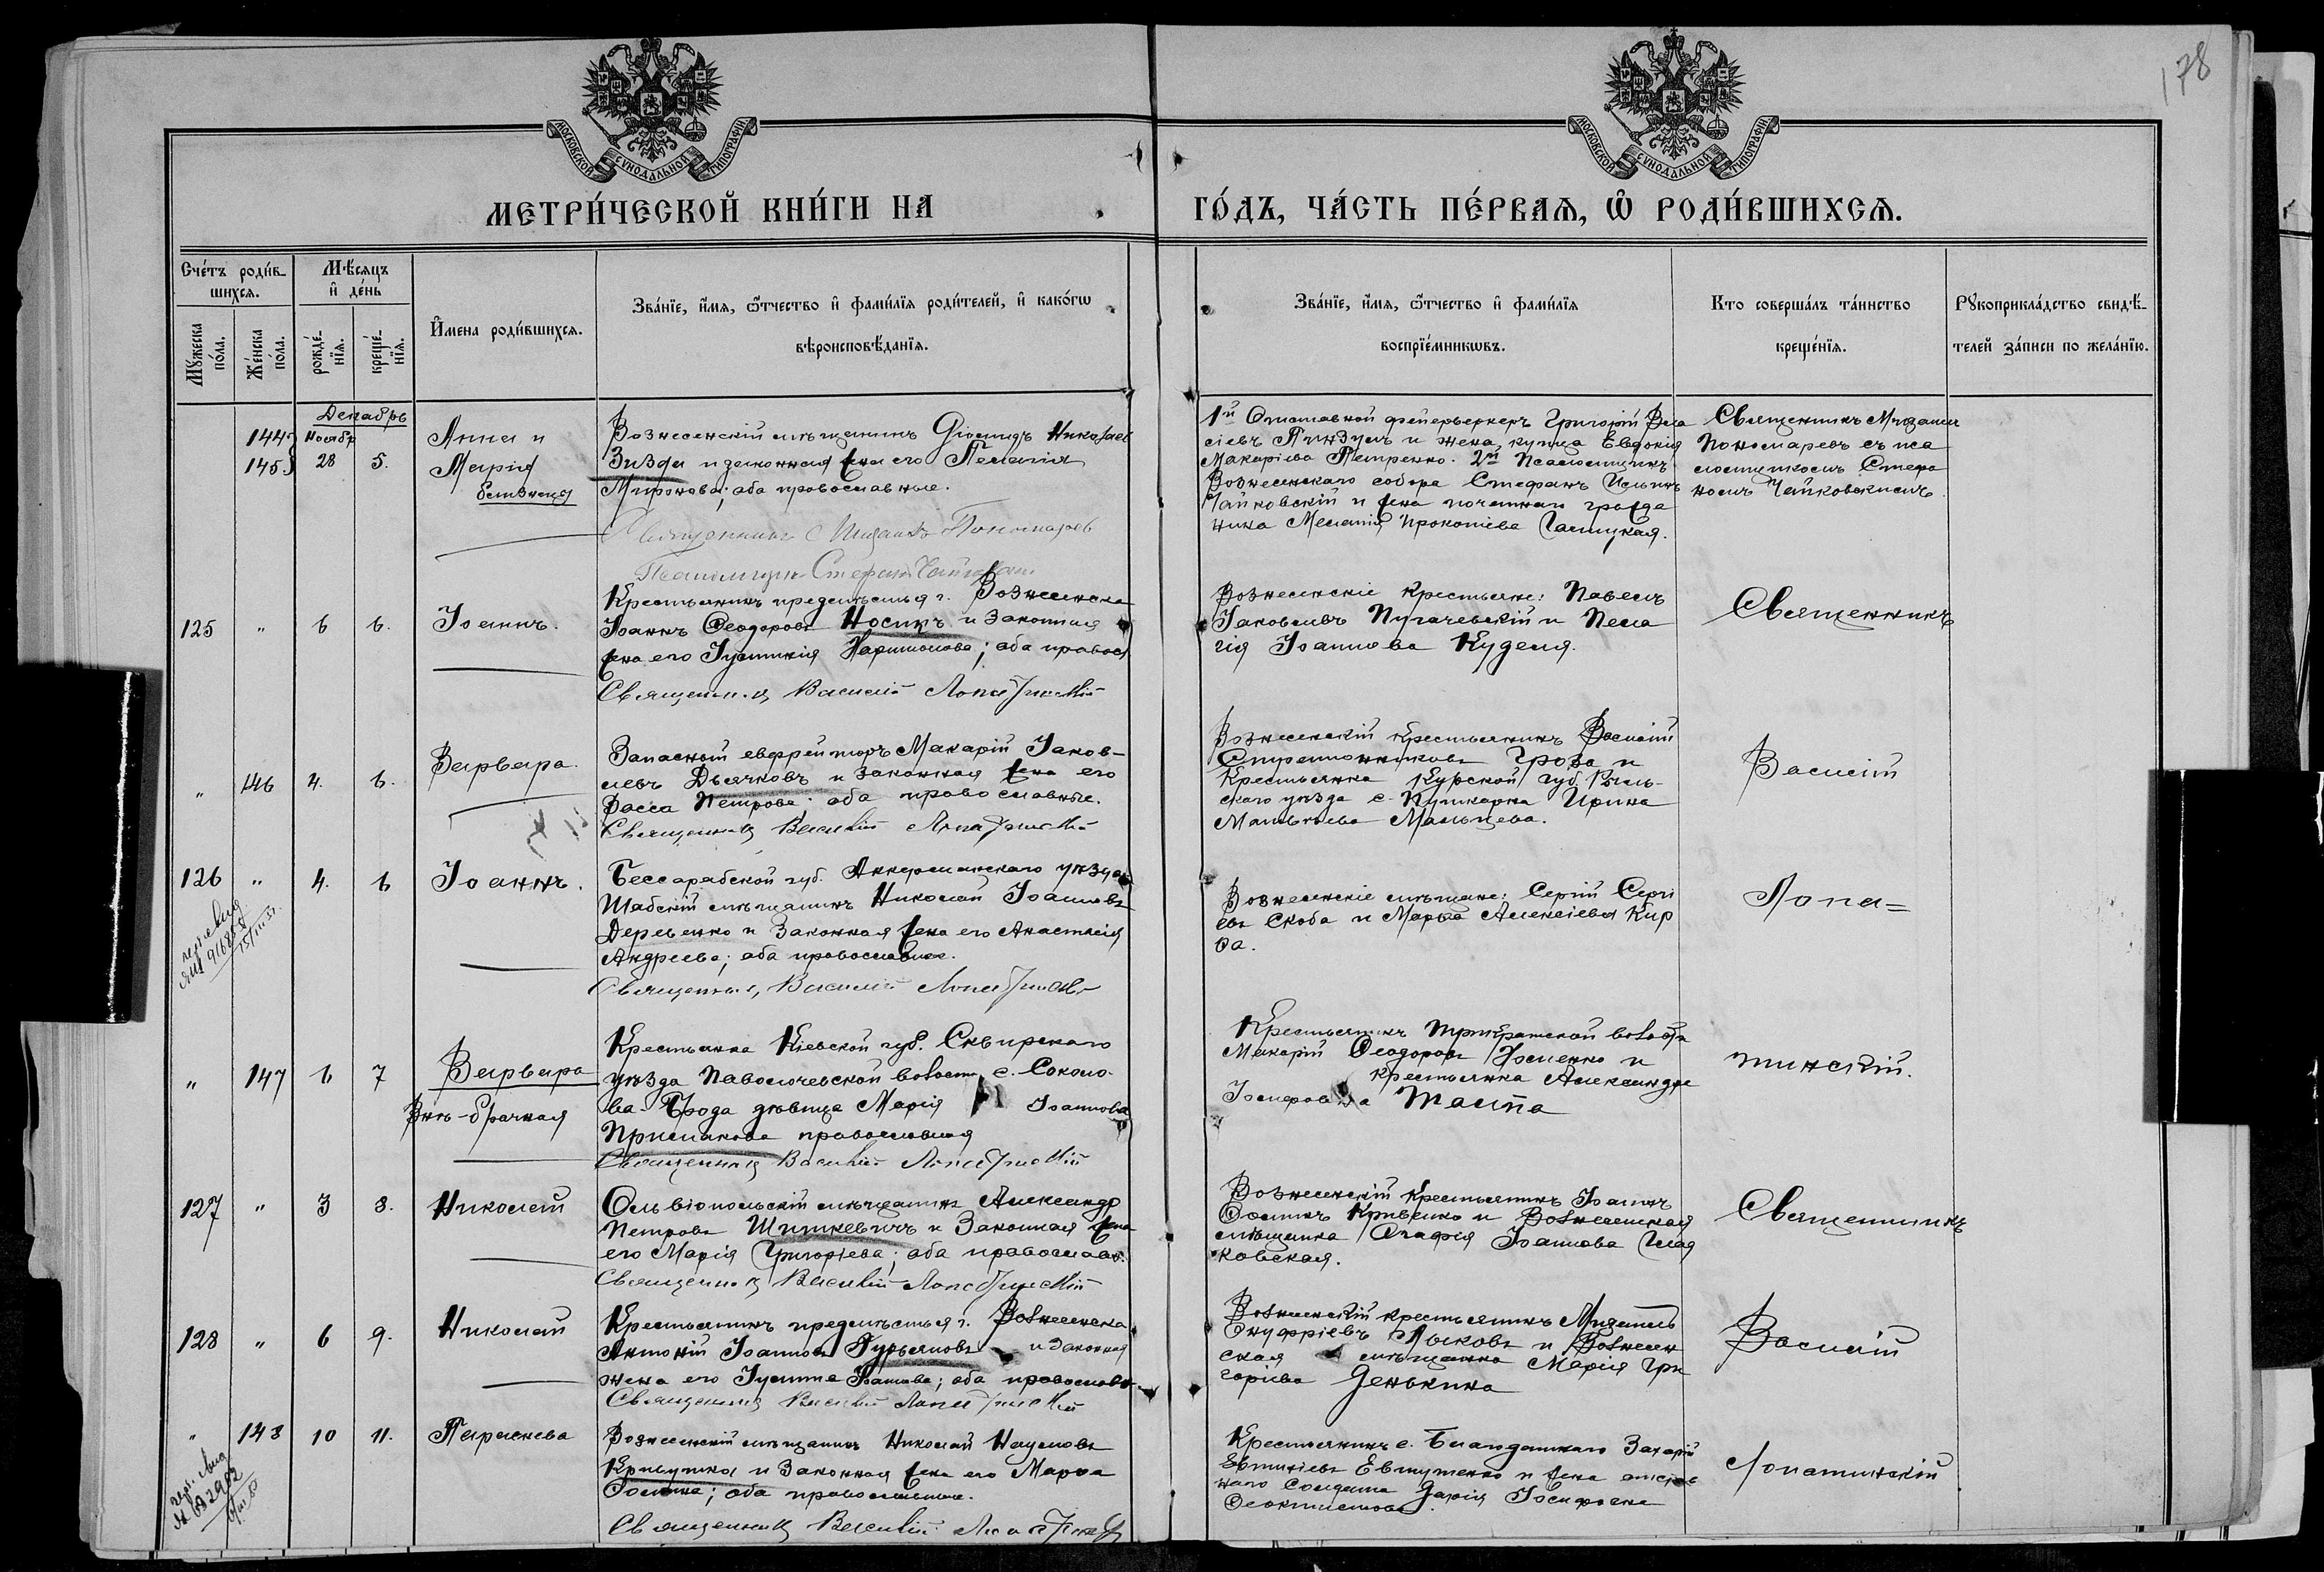 178
МОСКОВСКОЙ СѴНОДАЛЬНОЙ ТИПОГРАФІИ
МОСКОВСКОЙ СѴНОДАЛЬНОЙ ТИПОГРАФІИ
МЕТРИ́ЧЕСКОЙ КНИ́ГИ НА
ГО́ДЪ, ЧА́СТЬ ПЕ́РВАѦ, Ѽ РОДИ́ВШИХСѦ.
Сче́тъ роди́в-
шихсѧ.
Мꙋ́жеска
по́ла.
Же́нска
по́ла.
Мѣ́сѧцъ
и҆ де́нь
рожде́-
нїѧ.
креще́-
нїѧ.
И҆мена роди́вшихсѧ.
Зва́нїе, и҆́мѧ, ѻ҆́тчество и҆ фами́лїѧ роди́телей, и҆ како́гѡ
вѣроисповѣ́данїѧ.
Зва́нїе, и҆́мѧ, ѻ҆́тчество и҆ фами́лїѧ
воспрїе́мникѡвъ.
Кто соверша́лъ та́инство
креще́нїѧ.
Рꙋкоприкла́дство свидѣ́-
телей за́писи по жела́нїю.
Декабрь
144
145
Ноябр
28
5.
Анна и
Марія
близнецы
Вознесенскій мѣщанинъ Діомидъ Николаев
Зизда и законная жена его Пелагія
Миронова; оба православные.
Священникъ Михаилъ Пономарев
Псаломщик Стефан Чайковский
1й Отставной фейерверкеръ Григорій Вла
сіевъ Пинзулъ и жена купца Евдокія
Макаріева Петренко. 2й Псаломщикъ
Вознесенскаго собора Стефанъ Ильинъ
Чайковскій и жена почетнаго гражда
нина Меланія Прокопіева Галицкая.
Священникъ Михаилъ
Пономаревъ съ пса
ломщикомъ Стефа
номъ Чайковскимъ.
125
"
6
6.
Іоаннъ.
Крестьянинъ предмѣстья г. Вознесенска
Іоаннъ Ѳеодоровъ Носикъ и законная
жена его Іустинія Харитонова; оба правосл
Священникъ Василій Лопатинскій
Вознесенскіе крестьяне: Павелъ
Іаковлевъ Пугачевскій и Пела
гія Іоаннова Куделя.
Священникъ
"
146
4.
6.
Варвара.
Запасный ефрейторъ Макарій Іаков-
левъ Дьячковъ и законная жена его
Васса Петрова; оба православные.
Священникъ Василій Лопатинскій
Вознесенскій крестьянинъ Василій
Стратониковъ Гроза и
Крестьянка Курской губ. Рыль-
скаго уѣзда с. Пушкарна Ирина
Матвѣева Мальцева.
Василій
126
"
4.
6
Іоаннъ.
Бессарабской губ. Аккерманскаго уѣзда
Шабскій мѣщанинъ Николай Іоанновъ
Деревенко и законная жена его Анастасія
Андреева; оба православные.
Священникъ Василій Лопатинскій
Вознесенскіе мѣщане: Сергій Сергі
евъ Скоба и Марѳа Алексіева Кир
ва.
Лопа=
"
147
6
7
Варвара
Внѣ-брачная
Крестьянка Кіевской губ. Сквирскаго
уѣзда Паволочевской волости, с. Соколо-
ва-Брода дѣвица Марія Іоаннова
Присмакова православная
Священникъ Василій Лопатинскій
Крестьянинъ Трикратской волости
Макарій Ѳеодоровъ Хоменко и
крестьянка Александра
Іосифовна
тинскій.
127
"
3
8.
Николай
Ольвіопольскій мѣщанинъ Александр
Петровъ Шишкевичъ и законная жена
его Марія Григоріева; оба православн.
Священникъ Василій Лопатинскій
Вознесенскій крестьянинъ Іоаннъ
Ѳоминъ Кривенко и Вознесенская
мѣщанка Агафія Іоаннова Глад
ковская.
Священникъ
128
"
6
9.
Николай
Крестьянинъ предмѣстья г. Вознесенска
Антоній Іоанновъ Гурьяновъ и законная
жена его Іустина Іоаннова; оба православн
Священникъ Василій Лопатинскій
Вознесенскій крестьянинъ Михаилъ
Онуфріевъ Лысковъ и Вознесен
ская мѣщанка Марія Гри
горіева Денькина
Василій
"
148
10
11.
Параскева
Вознесенскій мѣщанинъ Николай Наумовъ
Кривушка и законная жена его Марѳа
Ѳомина; оба православные.
Священникъ Василій
Крестьянинъ с. Благодатнаго Захарій
Евтихіевъ Евтушенко и жена отстав
наго солдата Дарія Іосифовна
Ѳеоктистова.
Лопатинскій